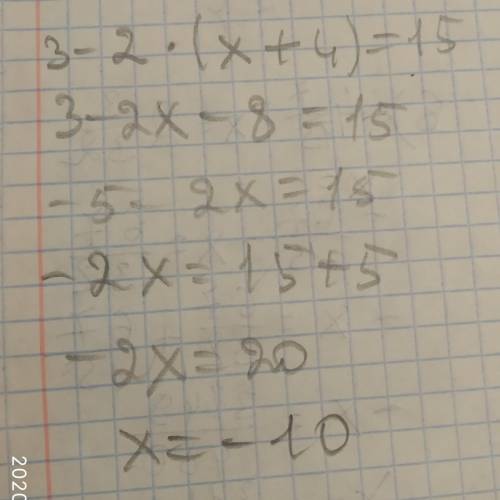 3-2·(x+4)=15
3-2x-8=15
-5-2x=15
-2x=15+5
-2x=20
x=-10
2020